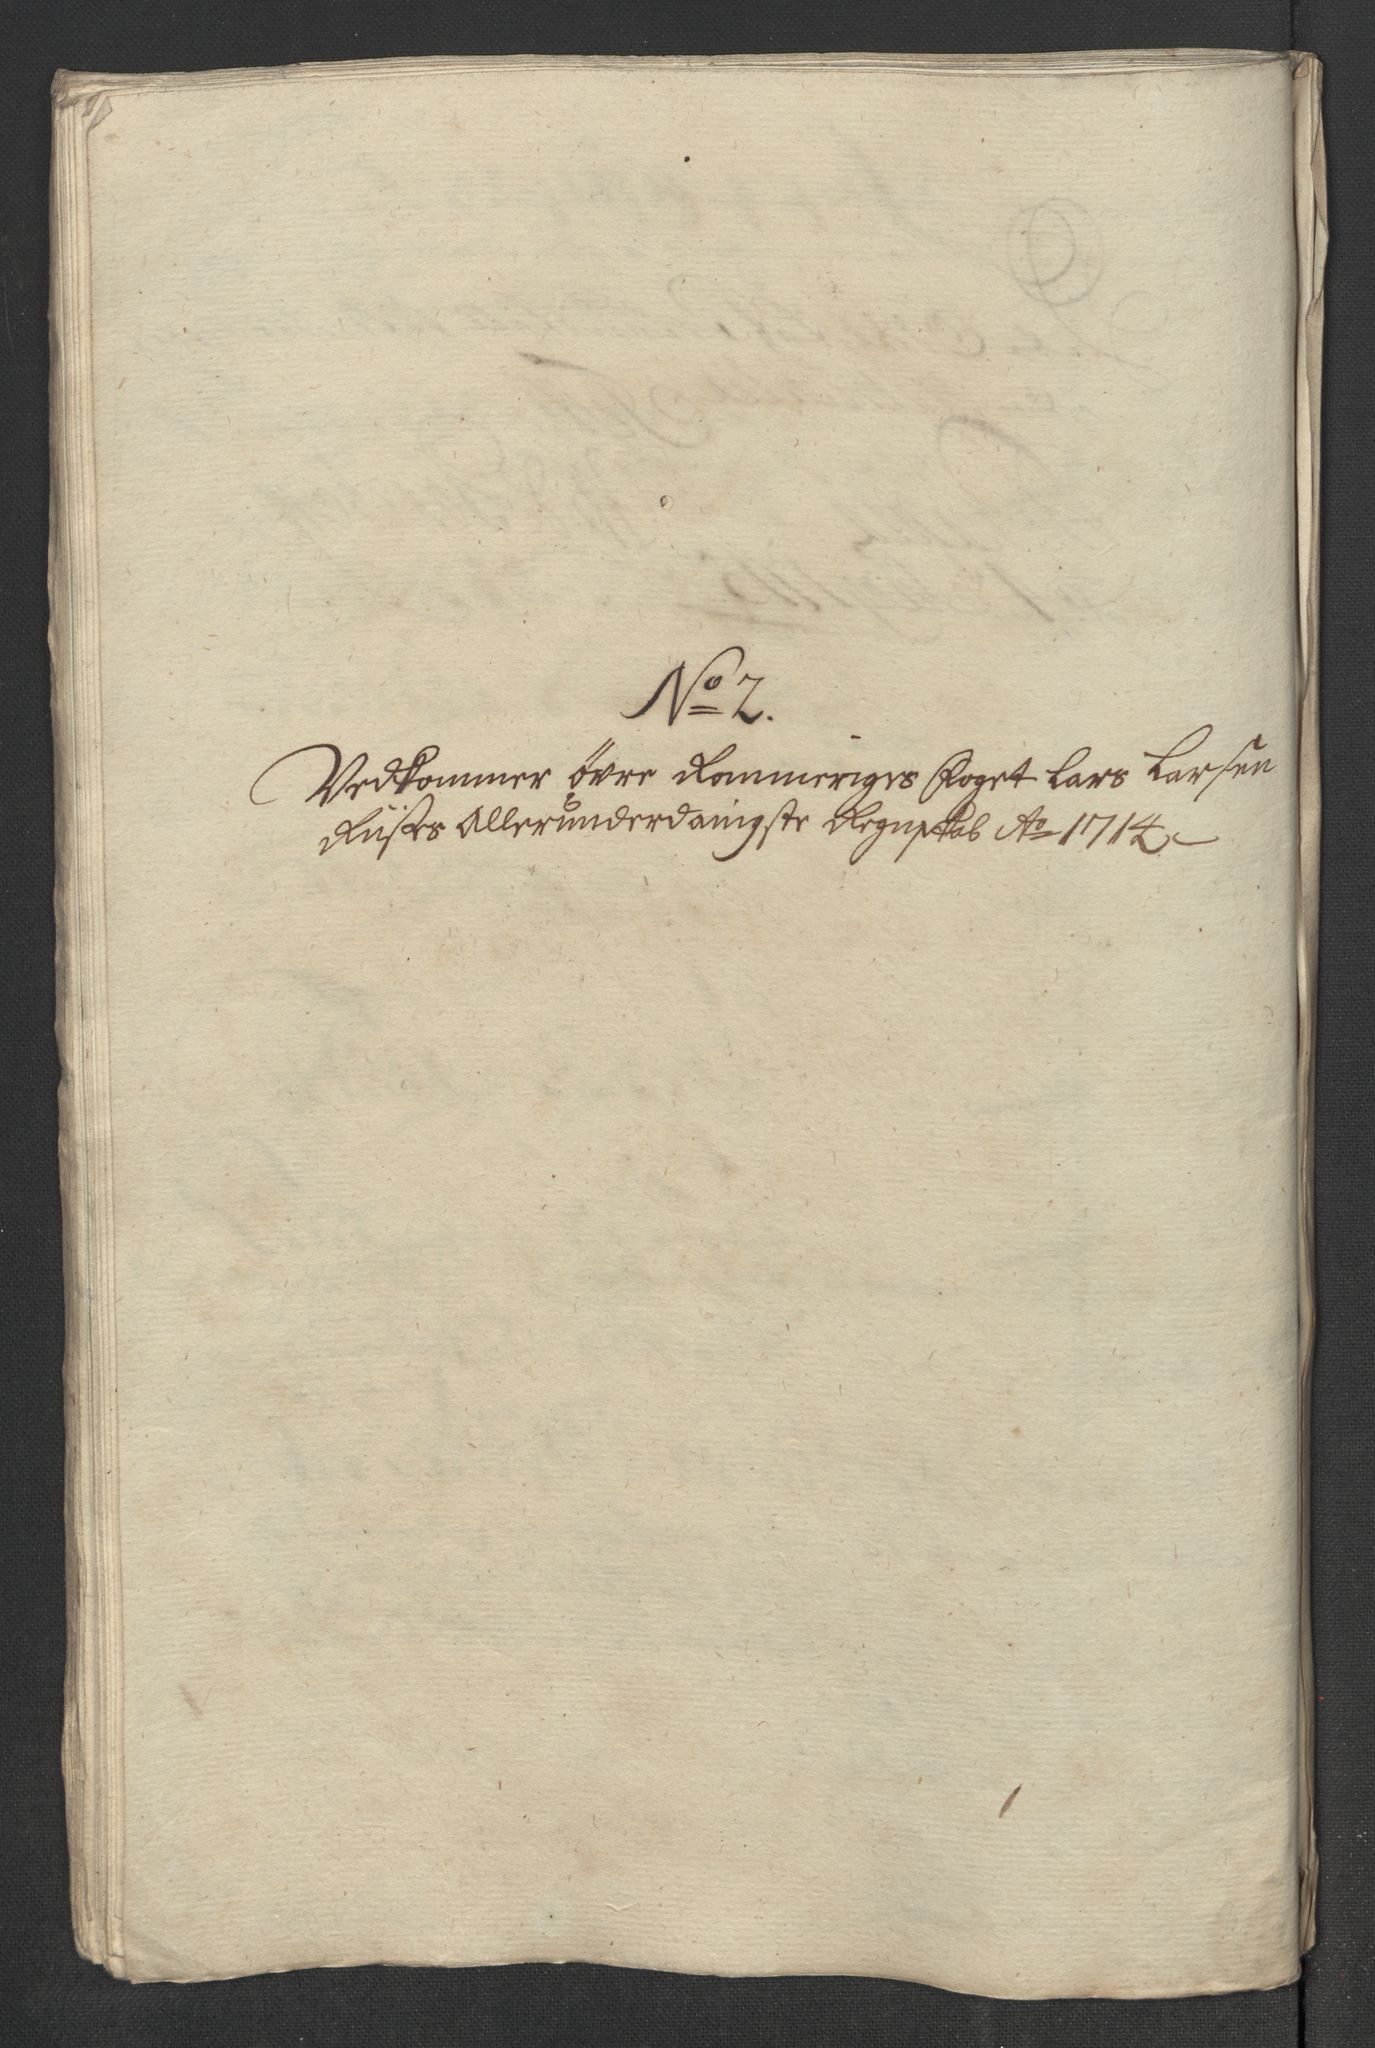 No 2.
Vedkommer øvre Rommeriges Foget Lars Larsen
Riises Allerunderdanigste Regnskab Ao 1714